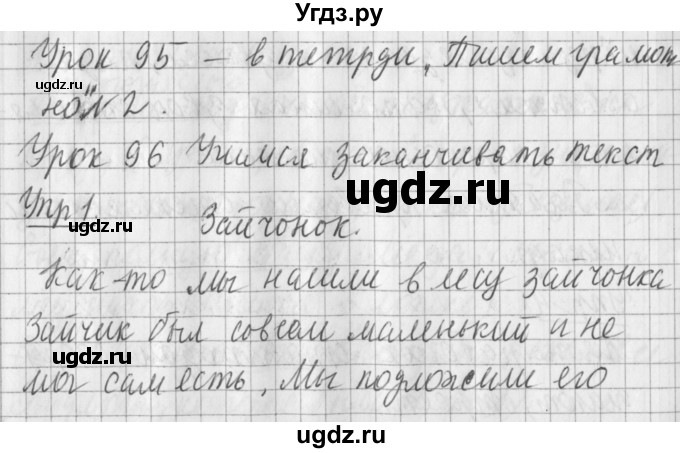 Угдз.ру
Урок 95 – в тетрди „Пишем грамот
но" №2.
Урок 96 Учимся заканчивать текст
ugdz.ru
Упр 1. Зайчонок.
ugdz.ru
Как-то мы нашли в лесу зайчонка
Зайчик был совсем маленький и не
ugdz.ru
мог сам есть. Мы подложили его
ugdz.ru